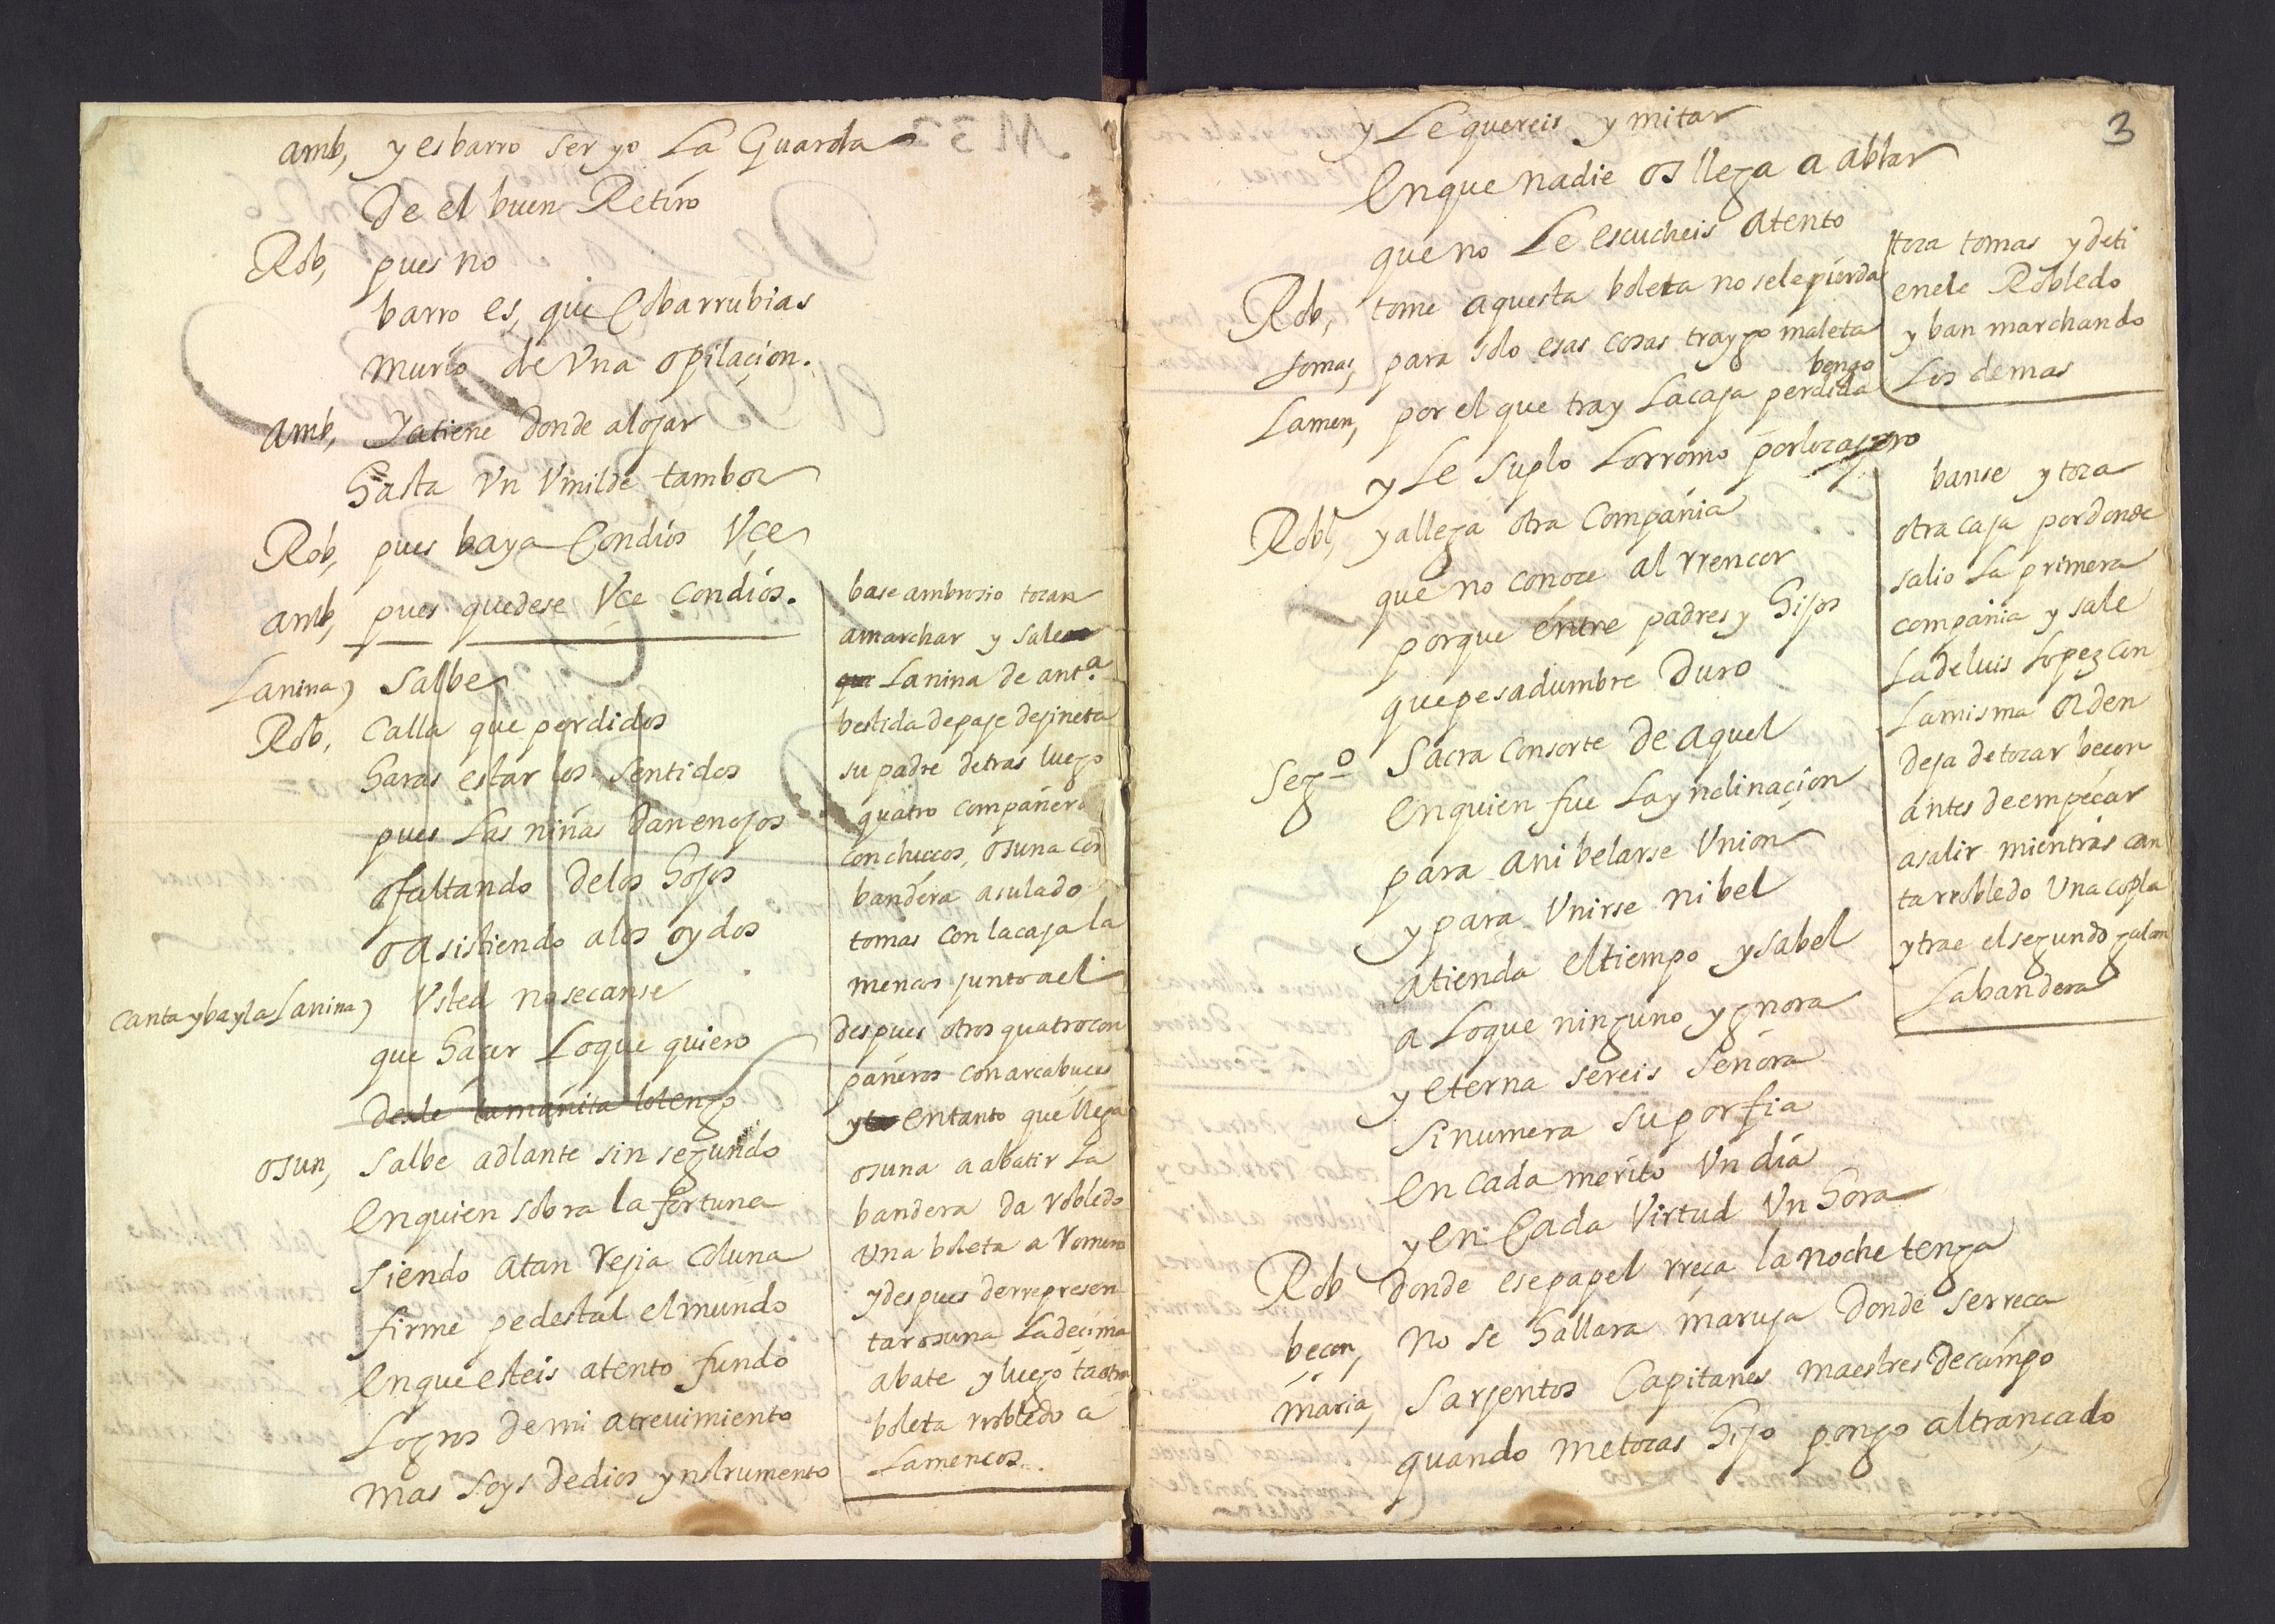 amb, y es barro ser yo La Guarda
De el buen Retiro
Rob, pues no
barro es, que Cobarrubias
murio de Vna opilaçion.
amb, Ya tiene donde alojar
hasta Vn Vmilde tambor
Rob, pues baya Condios Vçe
amb, pues quedese Vçe condios.
La nina, Salbe
Rob, Calla que perdidos
haras estar los sentidos
pues las niñas dan enojos
o faltando de los hojos
o asistiendo a los oydos
canta y bayla La nina, Vsted no se canse
que haçer Lo que quiero
desde tamañita lo tengo
osun, Salbe adlante sin segundo
en quien sobra la fortuna
siendo a tan rejia Coluna
firme pedestal el mundo
en que esteis atento fundo
Logros de mi atreuimiento
mas soys de dios ynstrumento
base ambrosio tocan
a marchar y sale
que La nina de ant.ª
bestida de paje de jineta
su padre detras luego
quatro compañero
con chuços, osuna con
bandera a su lado
tomas con la caja la
mencos junto a el
despues otros quatro con
pañeros con arcabuçes
y en tanto que llega
osuna a abatir La
bandera da robledo
Una boleta a romero
y despues de rrepresen
tar osuna La deçima
abate y luego da otra
boleta rrobledo a
Lamencos
3
y Le quereis ymitar
en que nadie os llega a ablar
que no Le escucheis atento
Rob, tome aquesta boleta no se le pierda
tomas, para solo esas cosas traygo maleta
bengo
Lamen, por el que tray La caja perdida
y Le suplo Lorromo por
Robl, ya llega otra Compañia
que no conoce al rrencor
porque entre padres y hijos
que pesadumbre duro
Seg.º Sacra consorte de aquel
en quien fue La ynclinaçion
para anibelarse Union
y para Vnirse nibel
atienda el tiempo ysabel
a Lo que ninguno ygnora
y eterna sereis señora
si numera su porfia
en cada merito Vn dia
y en Cada Virtud Vn hora
Rob donde ese papel rreça la noche tenga
becon, no se hallara maruja donde se rreça
maria, Sarjentos Capitanes maestres de campo
quando me tocas hijo pongo al trançado
toca tomas y deti
enele Robledo
y ban marchando
Los demas
banse y toca
otra caja por donde
salio La primera
compañia y sale
La de luis Lopez con
La misma orden
deja de tocar becon
antes de empeçar
a salir mientras can
ta rrobledo Una copla
y trae el segundo galan
La bandera